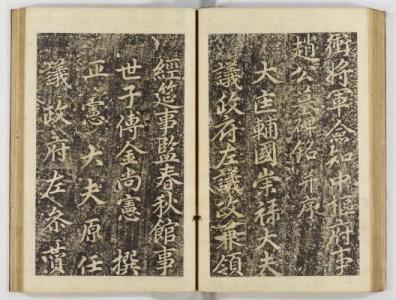 衛將軍僉知中樞府事
趙公墓碑銘并序
大匡輔國崇祿大夫
議政府左議政兼領
經筵事監春秋館事
世子傅金尙憲 撰
正憲大夫原任
議政府左參贊